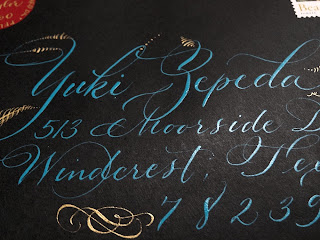 Bea
Yuki Zepeda
513 Moorside D
Windcrest, Tex
78239